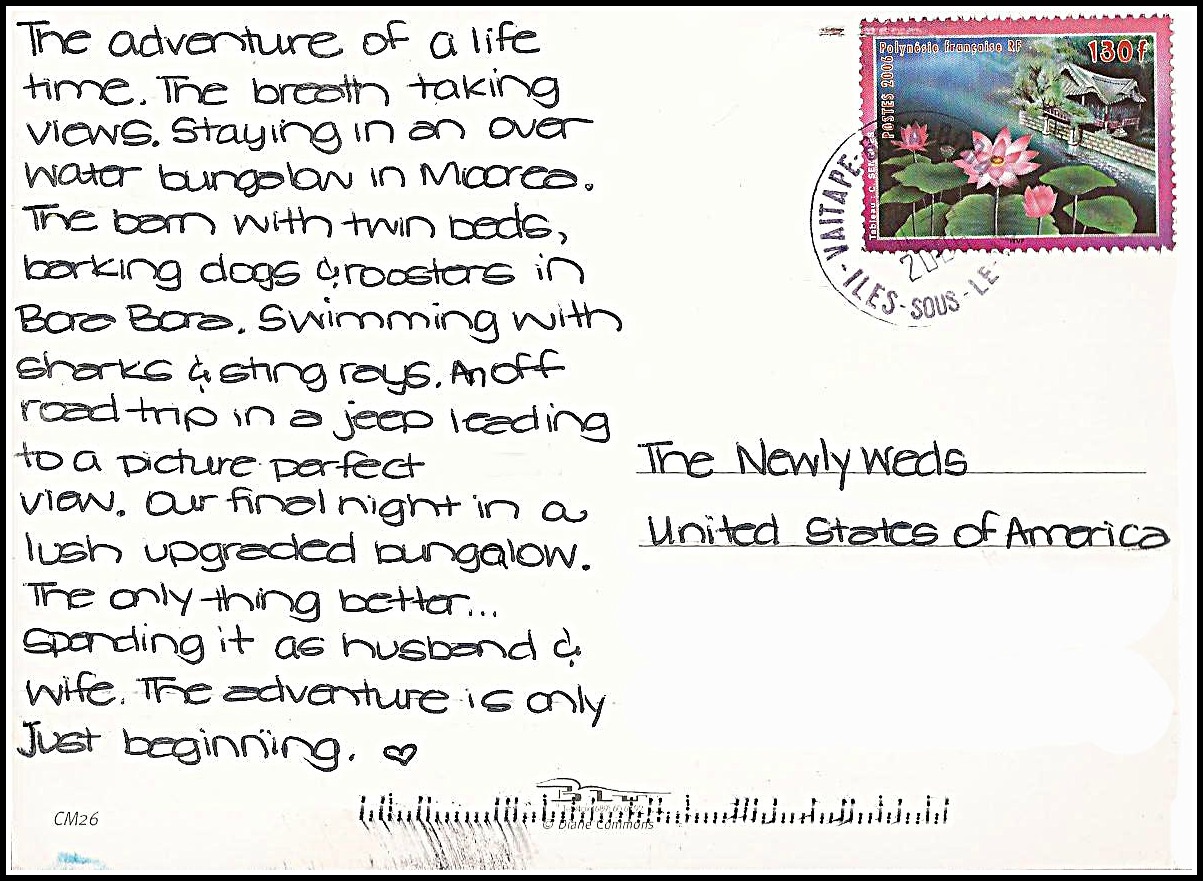 The adventure of a life
time. The breath taking
views. Staying in an over
water bungalow in Moorea.
The barn with twin beds,
barking dogs & roosters in
Bora Bora. Swimming with
sharks & sting rays. An off
road trip in a jeep leading
to a picture perfect
view. Our final night in a
lush upgraded bungalow.
The only thing better...
spending it as husband &
wife. The adventure is only
Just beginning. ♡
Polynésie française RF
130f
POSTES 2006
Tableau : C.
VAITAPE-
-ILES-SOUS-LE
The Newly Weds
United States of America
CM26
© Diane Commons